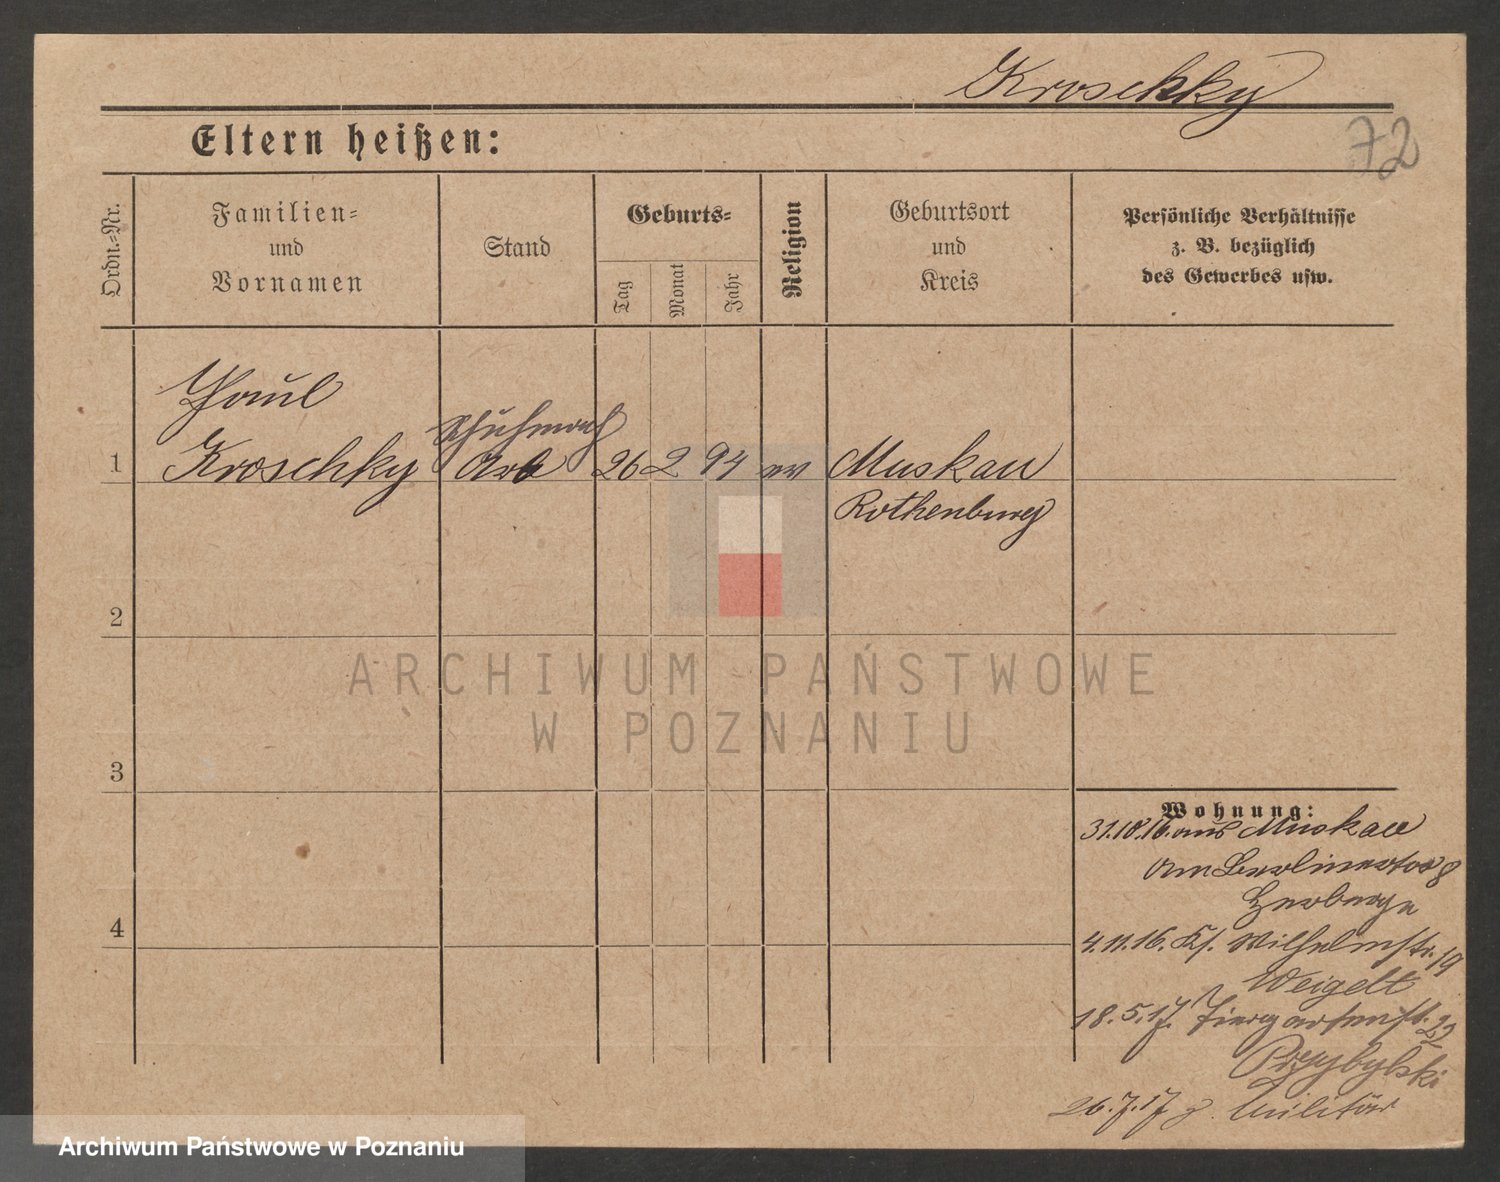 Kroschky
72
Eltern heißen:
Ordn.=Nr.
Familien=
und
Vornamen
Stand
Geburts=
Tag
Monat
Jahr
Religion
Geburtsort
und
Kreis
Persönliche Verhältnisse
z. B. bezüglich
des Gewerbes usw.
Paul
Schuhmach
1 Kroschky Arb 26 2 94 ev Muskau
Rothenburg
2
ARCHIWUM PAŃSTWOWE
W POZNANIU
3
Wohnung:
31.10.16. aus Muskau
Am Berlinertor 8
Herberge
4
4.11.16. Kl. Wilhelmstr. 19
Weigelt
18.5.17. Tiergartenstr. 22
Przybylski
26.7.17 z. Militär
Archiwum Państwowe w Poznaniu